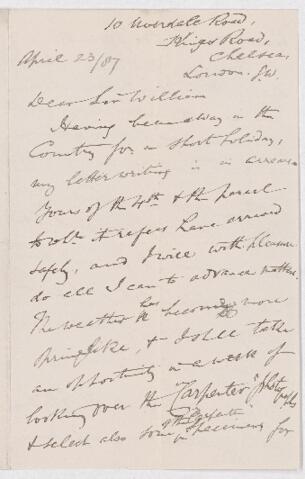 10 Uverdale Road,
Kings Road,
Chelsea,
London. S.W.
April 23/87
Dear Sir William
Having been away in the
Country for a short holiday,
my letter writing is in arrears
Yours of the 4th & the parcel
to wh. it refers have arrived
safely, and I will with pleasure
do all I can to advance matters.
The weather has become more
Springlike, & I shall take
an opportunity in a week of
looking over the "Carpenter" photographs
& select also some specimens for